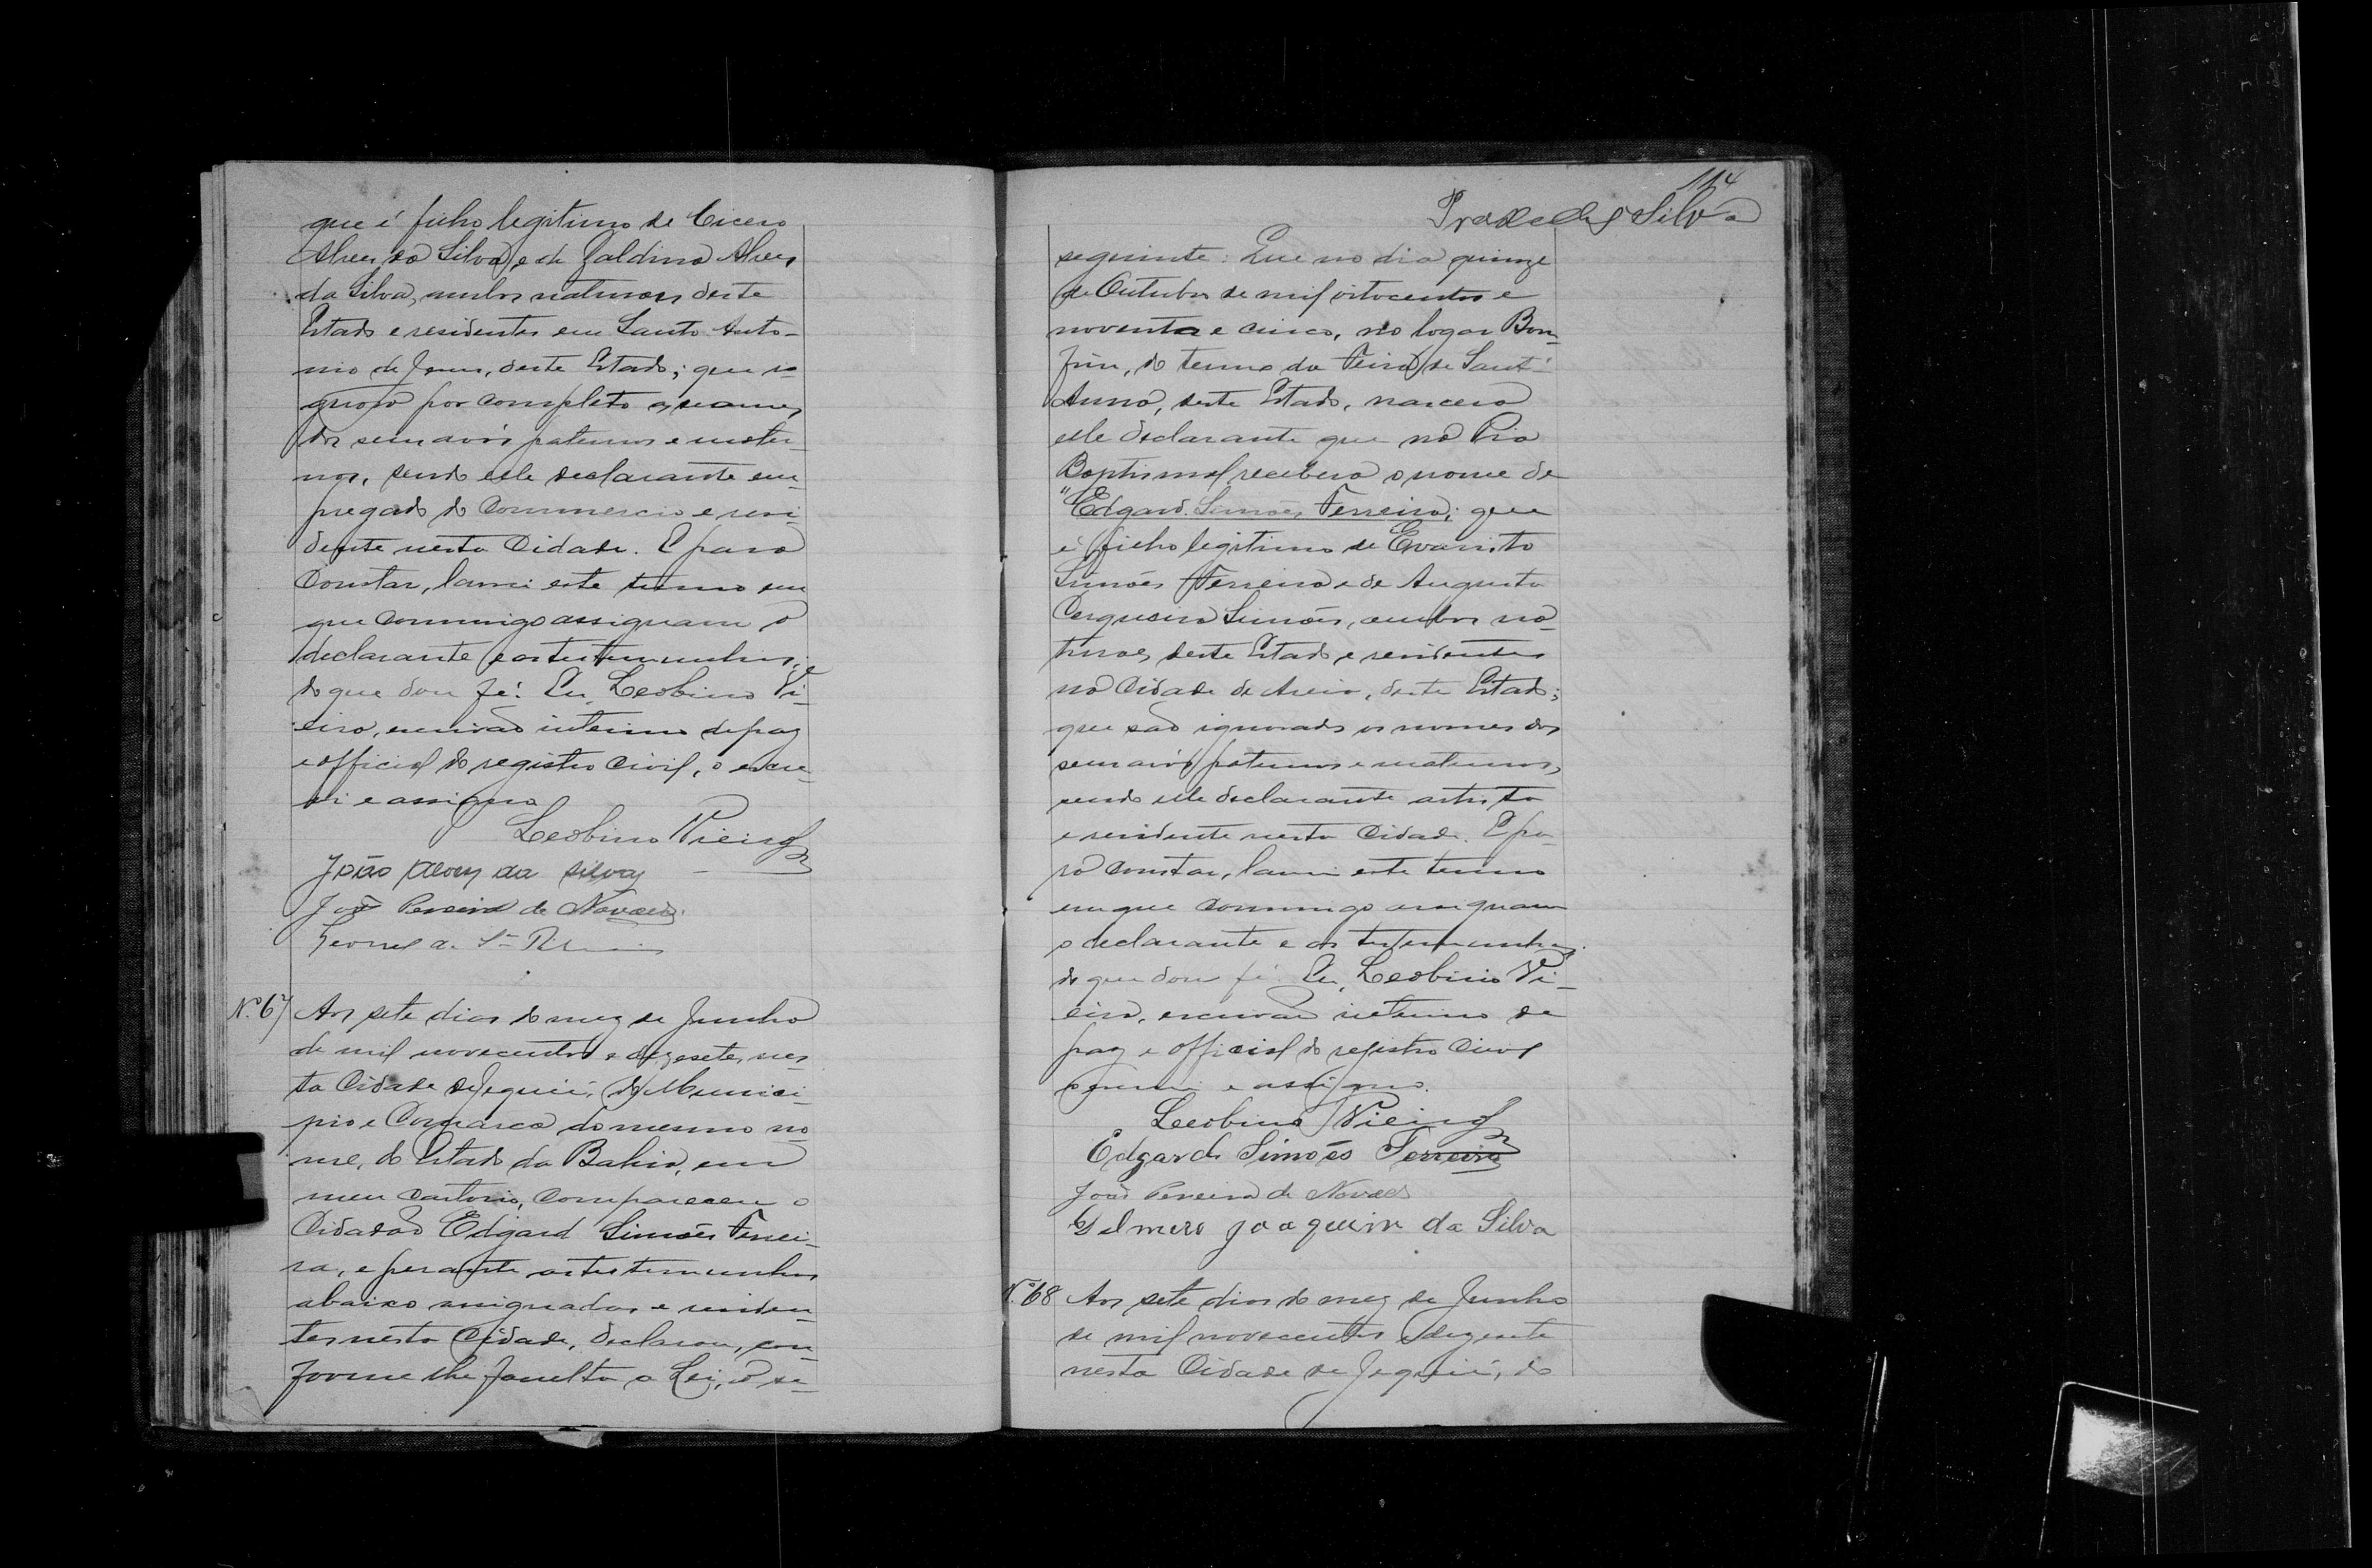 que é filho legitimo de Cicero
Alves da Silva e de Galdina Alves
da Silva, ambos naturaes deste
Estado e residentes em Santo Anto-
nio de Jesus, deste Estado; que i-
gnora por completo os nomes
dos seus avós paternos e mater-
nos, sendo elle declarante em-
pregado do Commercio e resi-
dente nesta Cidade. E para
Constar, lavrei este termo em
que commigo assignam o
declarante e as testemunhas;
do que dou fé. Eu, Leobino Vi-
eira, escrivão interino de paz
e official do registro Civil, o escre-
vi e assigno
Leobino Vieira
João Alves da Silva
João Pereira de Novaes
Leonel a.
Nº 67 Aos sete dias do mez de Junho
de mil novecentos e dezesete, nes-
ta Cidade de Jequié, do Munici-
pio e Comarca do mesmo no-
me, do Estado da Bahia, em
meu Cartorio, compareceu o
Cidadão Edgard Simões Ferrei-
ra, e perante as testemunhas
abaixo assignadas e residen-
tes nesta Cidade, declarou, con-
forme lhe faculta a Lei, o se-
114
Silva
seguinte: Que no dia quinze
de Outubro de mil oitocentos e
noventa e cinco, no logar Bom-
fim, do termo da Feira de Sant'
Anna, deste Estado, nascera
elle declarante que na Pia
Baptismal recebera o nome de
"Edgard Simões Ferreira; que
é filho legitimo de Evaristo
Simões Ferreira e de Augusta
Cerqueira Simões, ambos na-
turaes deste Estado e residentes
na Cidade de Areia, deste Estado;
que são ignorados os nomes dos
seus avós paternos e maternos,
sendo elle declarante artista
e residente nesta Cidade. E pa-
ra constar, lavrei este termo
em que commigo assignam
o declarante e as testemunhas;
do que dou fé. Eu, Leobino Vi-
eira, escrivão interino de
paz e official do registro Civil
o escrevi e assigno.
Leobino Vieira
Edgard Simões Ferreira
João Pereira de Novaes
Joaquim da Silva
Nº 68 Aos sete dias do mez de Junho
de mil novecentos e dezesete
nesta Cidade de Jequié, do